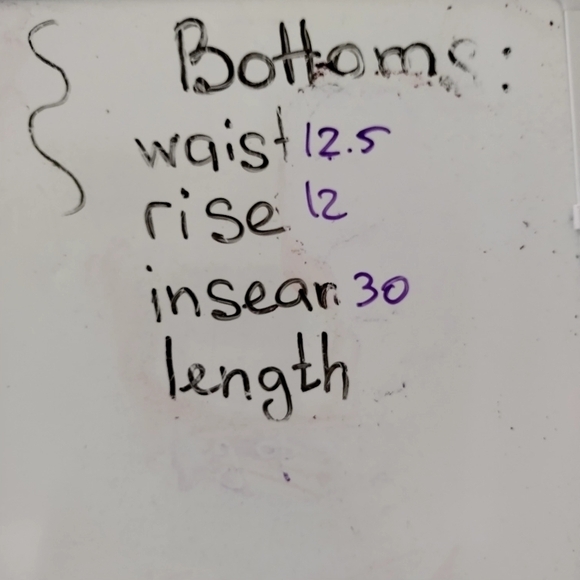 Bottoms:
waist 12.5
rise 12
inseam 30
length